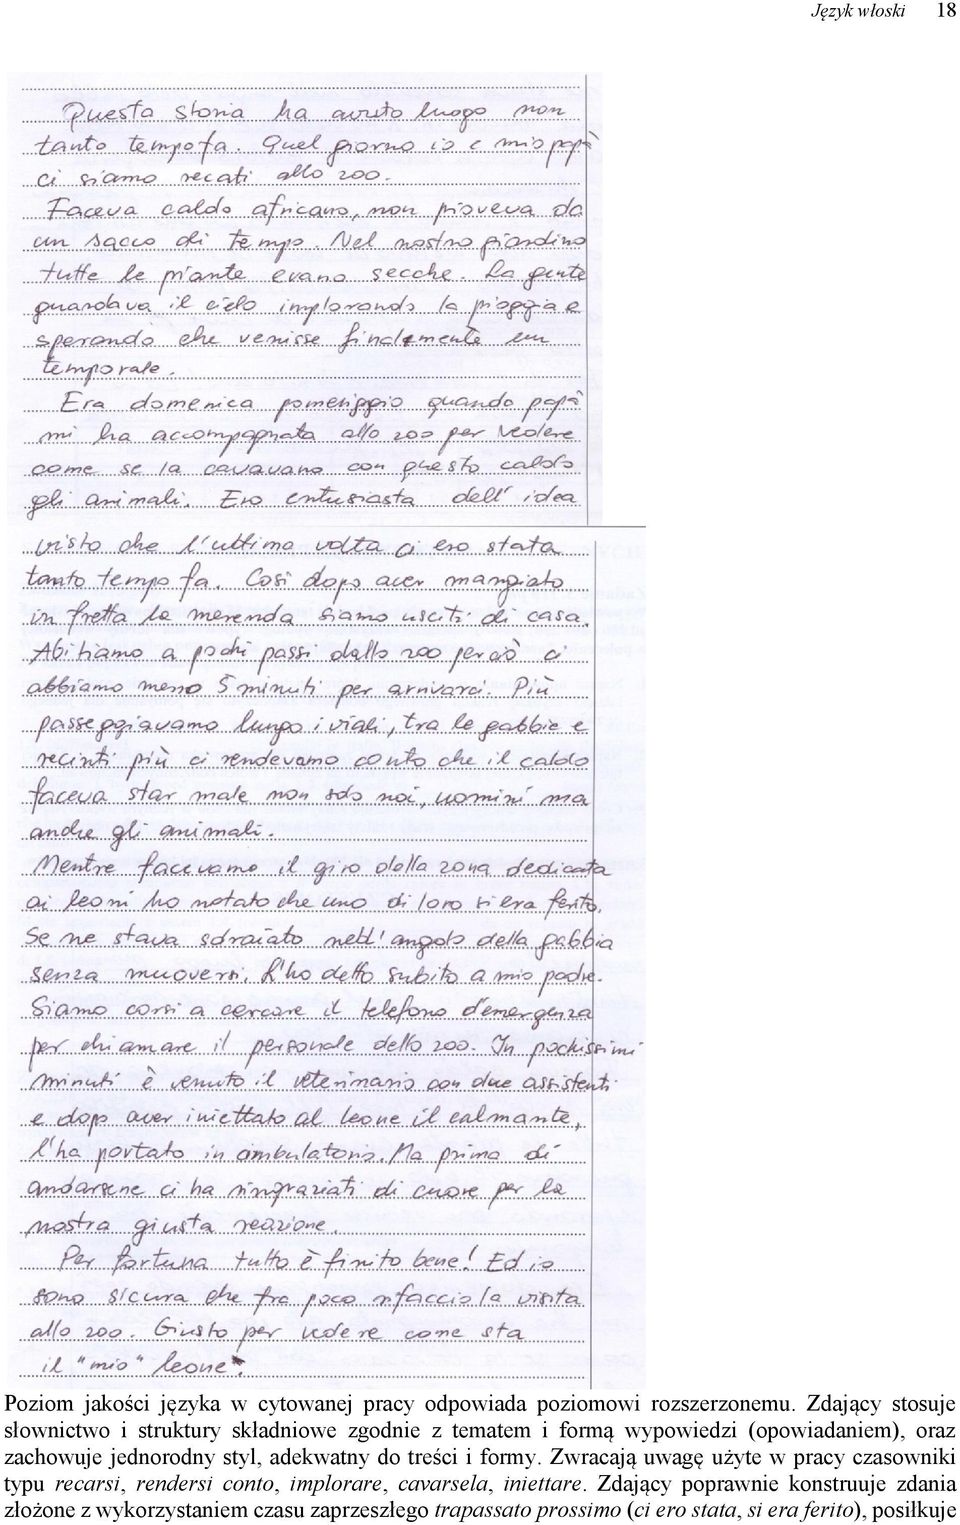 Język włoski 18
Questa storia ha avuto luogo non
tanto tempo fa. Quel giorno io e mio papà
ci siamo recati allo zoo.
Faceva caldo africano, non pioveva da
un sacco di tempo. Nel nostro giardino
tutte le piante erano secche. La gente
guardava il cielo implorando la pioggia e
sperando che venisse finalmente un
temporale.
Era domenica pomeriggio quando papà
mi ha accompagnata allo zoo per vedere
come se la cavavano con questo caldo
gli animali. Ero entusiasta dell'idea
visto che l'ultima volta ci ero stata
tanto tempo fa. Così dopo aver mangiato
in fretta la merenda siamo usciti di casa.
Abitiamo a pochi passi dallo zoo perciò ci
abbiamo messo 5 minuti per arrivarci. Più
passeggiavamo lungo i viali, tra le gabbie e
recinti più ci rendevamo conto che il caldo
faceva star male non solo noi, uomini ma
anche gli animali.
Mentre facevamo il giro della zona dedicata
ai leoni ho notato che uno di loro si era ferito.
Se ne stava sdraiato nell'angolo della gabbia
senza muoversi. L'ho detto subito a mio padre.
Siamo corsi a cercare il telefono d'emergenza
per chiamare il personale dello zoo. In pochissimi
minuti è venuto il veterinario con due assistenti
e dopo aver iniettato al leone il calmante,
l'ha portato in ambulatorio. Ma prima di
andarsene ci ha ringraziati di cuore per la
nostra giusta reazione.
Per fortuna tutto è finito bene! Ed io
sono sicura che fra poco rifaccio la visita
allo zoo. Giusto per vedere come sta
il "mio" leone.
Poziom jakości języka w cytowanej pracy odpowiada poziomowi rozszerzonemu. Zdający stosuje
słownictwo i struktury składniowe zgodnie z tematem i formą wypowiedzi (opowiadaniem), oraz
zachowuje jednorodny styl, adekwatny do treści i formy. Zwracają uwagę użyte w pracy czasowniki
typu recarsi, rendersi conto, implorare, cavarsela, iniettare. Zdający poprawnie konstruuje zdania
złożone z wykorzystaniem czasu zaprzeszłego trapassato prossimo (ci ero stata, si era ferito), posiłkuje